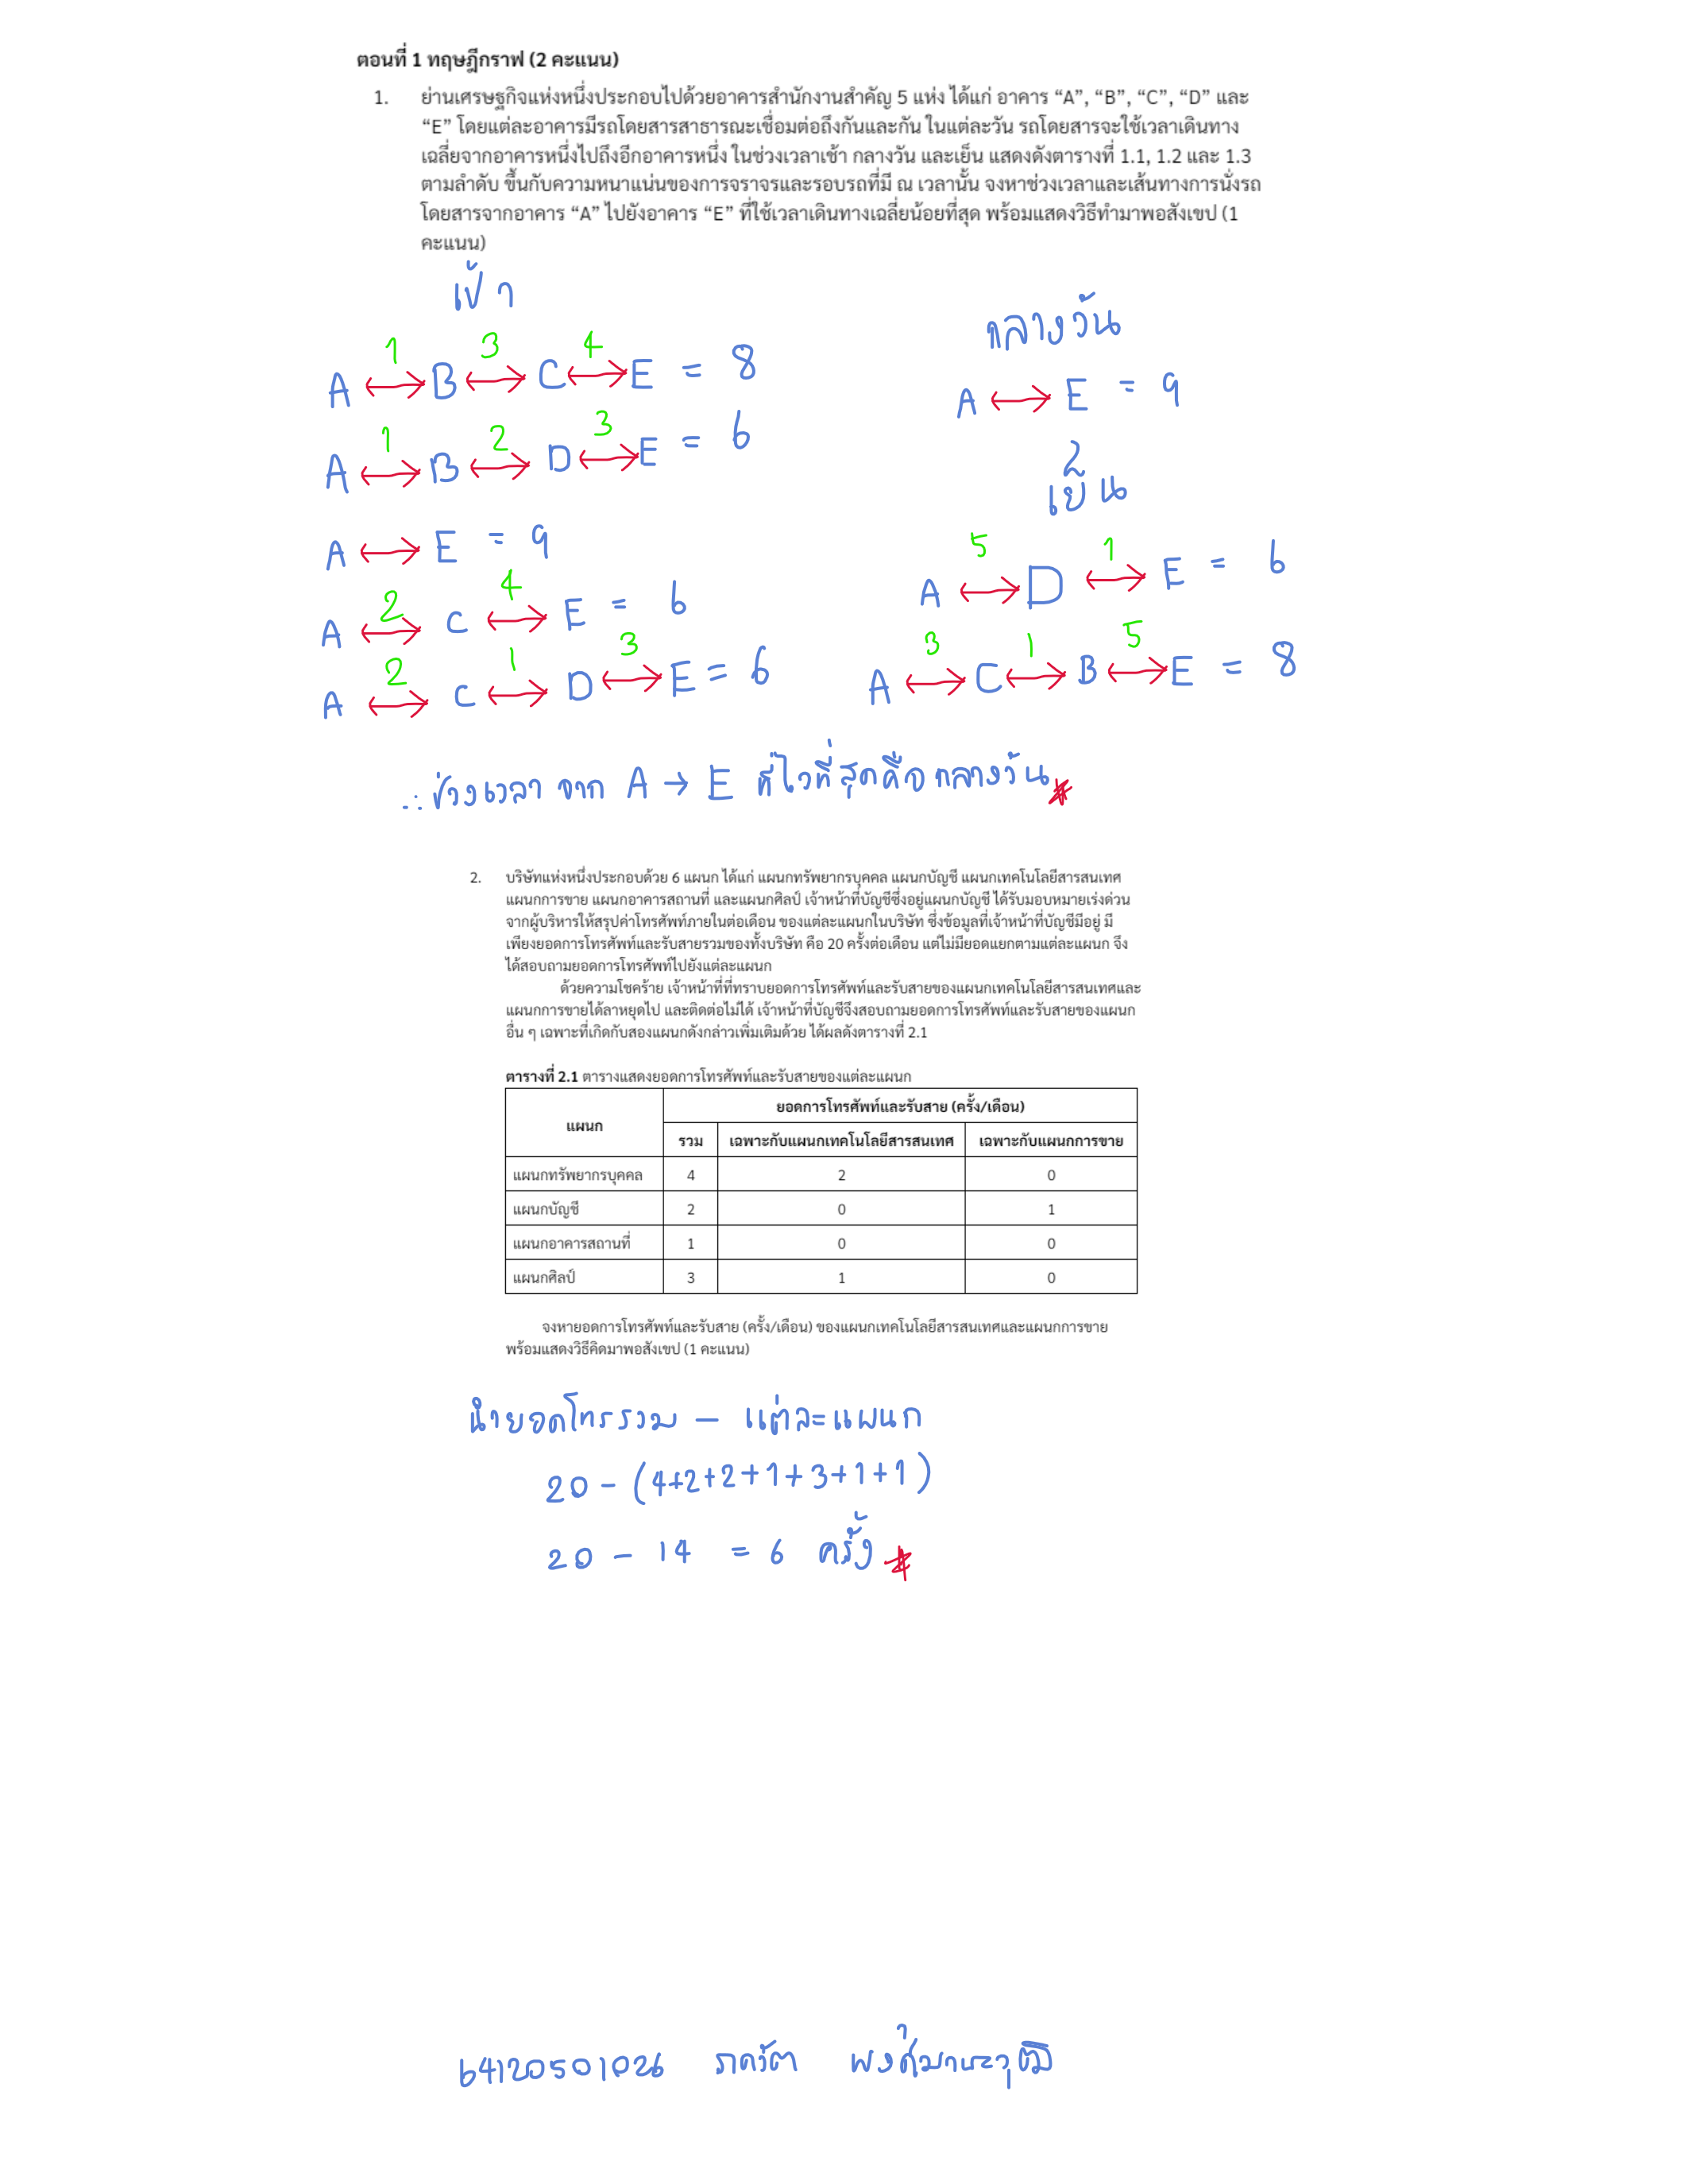 ตอนที่ 1 ทฤษฎีกราฟ (2 คะแนน)
1. ย่านเศรษฐกิจแห่งหนึ่งประกอบไปด้วยอาคารสำนักงานสำคัญ 5 แห่ง ได้แก่ อาคาร “A”, “B”, “C”, “D” และ
“E” โดยแต่ละอาคารมีรถโดยสารสาธารณะเชื่อมต่อถึงกันและกัน ในแต่ละวัน รถโดยสารจะใช้เวลาเดินทาง
เฉลี่ยจากอาคารหนึ่งไปถึงอีกอาคารหนึ่ง ในช่วงเวลาเช้า กลางวัน และเย็น แสดงดังตารางที่ 1.1, 1.2 และ 1.3
ตามลำดับ ขึ้นกับความหนาแน่นของการจราจรและรอบรถที่มี ณ เวลานั้น จงหาช่วงเวลาและเส้นทางการนั่งรถ
โดยสารจากอาคาร “A” ไปยังอาคาร “E” ที่ใช้เวลาเดินทางเฉลี่ยน้อยที่สุด พร้อมแสดงวิธีทำมาพอสังเขป (1
คะแนน)
เช้า
1 3 4
A ↔ B ↔ C ↔ E = 8
1 2 3
A ↔ B ↔ D ↔ E = 6
A ↔ E = 9
2 4
A ↔ C ↔ E = 6
2 1 3
A ↔ C ↔ D ↔ E = 6
กลางวัน
A ↔ E = 9
2
เย็น
5 1
A ↔ D ↔ E = 6
3 1 5
A ↔ C ↔ B ↔ E = 8
∴ ช่วงเวลา จาก A → E ที่ไวที่สุดคือ กลางวัน
2. บริษัทแห่งหนึ่งประกอบด้วย 6 แผนก ได้แก่ แผนกทรัพยากรบุคคล แผนกบัญชี แผนกเทคโนโลยีสารสนเทศ
แผนกการขาย แผนกอาคารสถานที่ และแผนกศิลป์ เจ้าหน้าที่บัญชีซึ่งอยู่แผนกบัญชี ได้รับมอบหมายเร่งด่วน
จากผู้บริหารให้สรุปค่าโทรศัพท์ภายในต่อเดือน ของแต่ละแผนกในบริษัท ซึ่งข้อมูลที่เจ้าหน้าที่บัญชีมีอยู่ มี
เพียงยอดการโทรศัพท์และรับสายรวมของทั้งบริษัท คือ 20 ครั้งต่อเดือน แต่ไม่มียอดแยกตามแต่ละแผนก จึง
ได้สอบถามยอดการโทรศัพท์ไปยังแต่ละแผนก
ด้วยความโชคร้าย เจ้าหน้าที่ที่ทราบยอดการโทรศัพท์และรับสายของแผนกเทคโนโลยีสารสนเทศและ
แผนกการขายได้ลาหยุดไป และติดต่อไม่ได้ เจ้าหน้าที่บัญชีจึงสอบถามยอดการโทรศัพท์และรับสายของแผนก
อื่น ๆ เฉพาะที่เกิดกับสองแผนกดังกล่าวเพิ่มเติมด้วย ได้ผลดังตารางที่ 2.1
ตารางที่ 2.1 ตารางแสดงยอดการโทรศัพท์และรับสายของแต่ละแผนก
แผนก ยอดการโทรศัพท์และรับสาย (ครั้ง/เดือน)
รวม เฉพาะกับแผนกเทคโนโลยีสารสนเทศ เฉพาะกับแผนกการขาย
แผนกทรัพยากรบุคคล 4 2 0
แผนกบัญชี 2 0 1
แผนกอาคารสถานที่ 1 0 0
แผนกศิลป์ 3 1 0
จงหายอดการโทรศัพท์และรับสาย (ครั้ง/เดือน) ของแผนกเทคโนโลยีสารสนเทศและแผนกการขาย
พร้อมแสดงวิธีคิดมาพอสังเขป (1 คะแนน)
นำยอดโทรรวม – แต่ละแผนก
20 - (4+2+2+1+3+1+1)
20 - 14 = 6 ครั้ง
64120501026 ภควัต